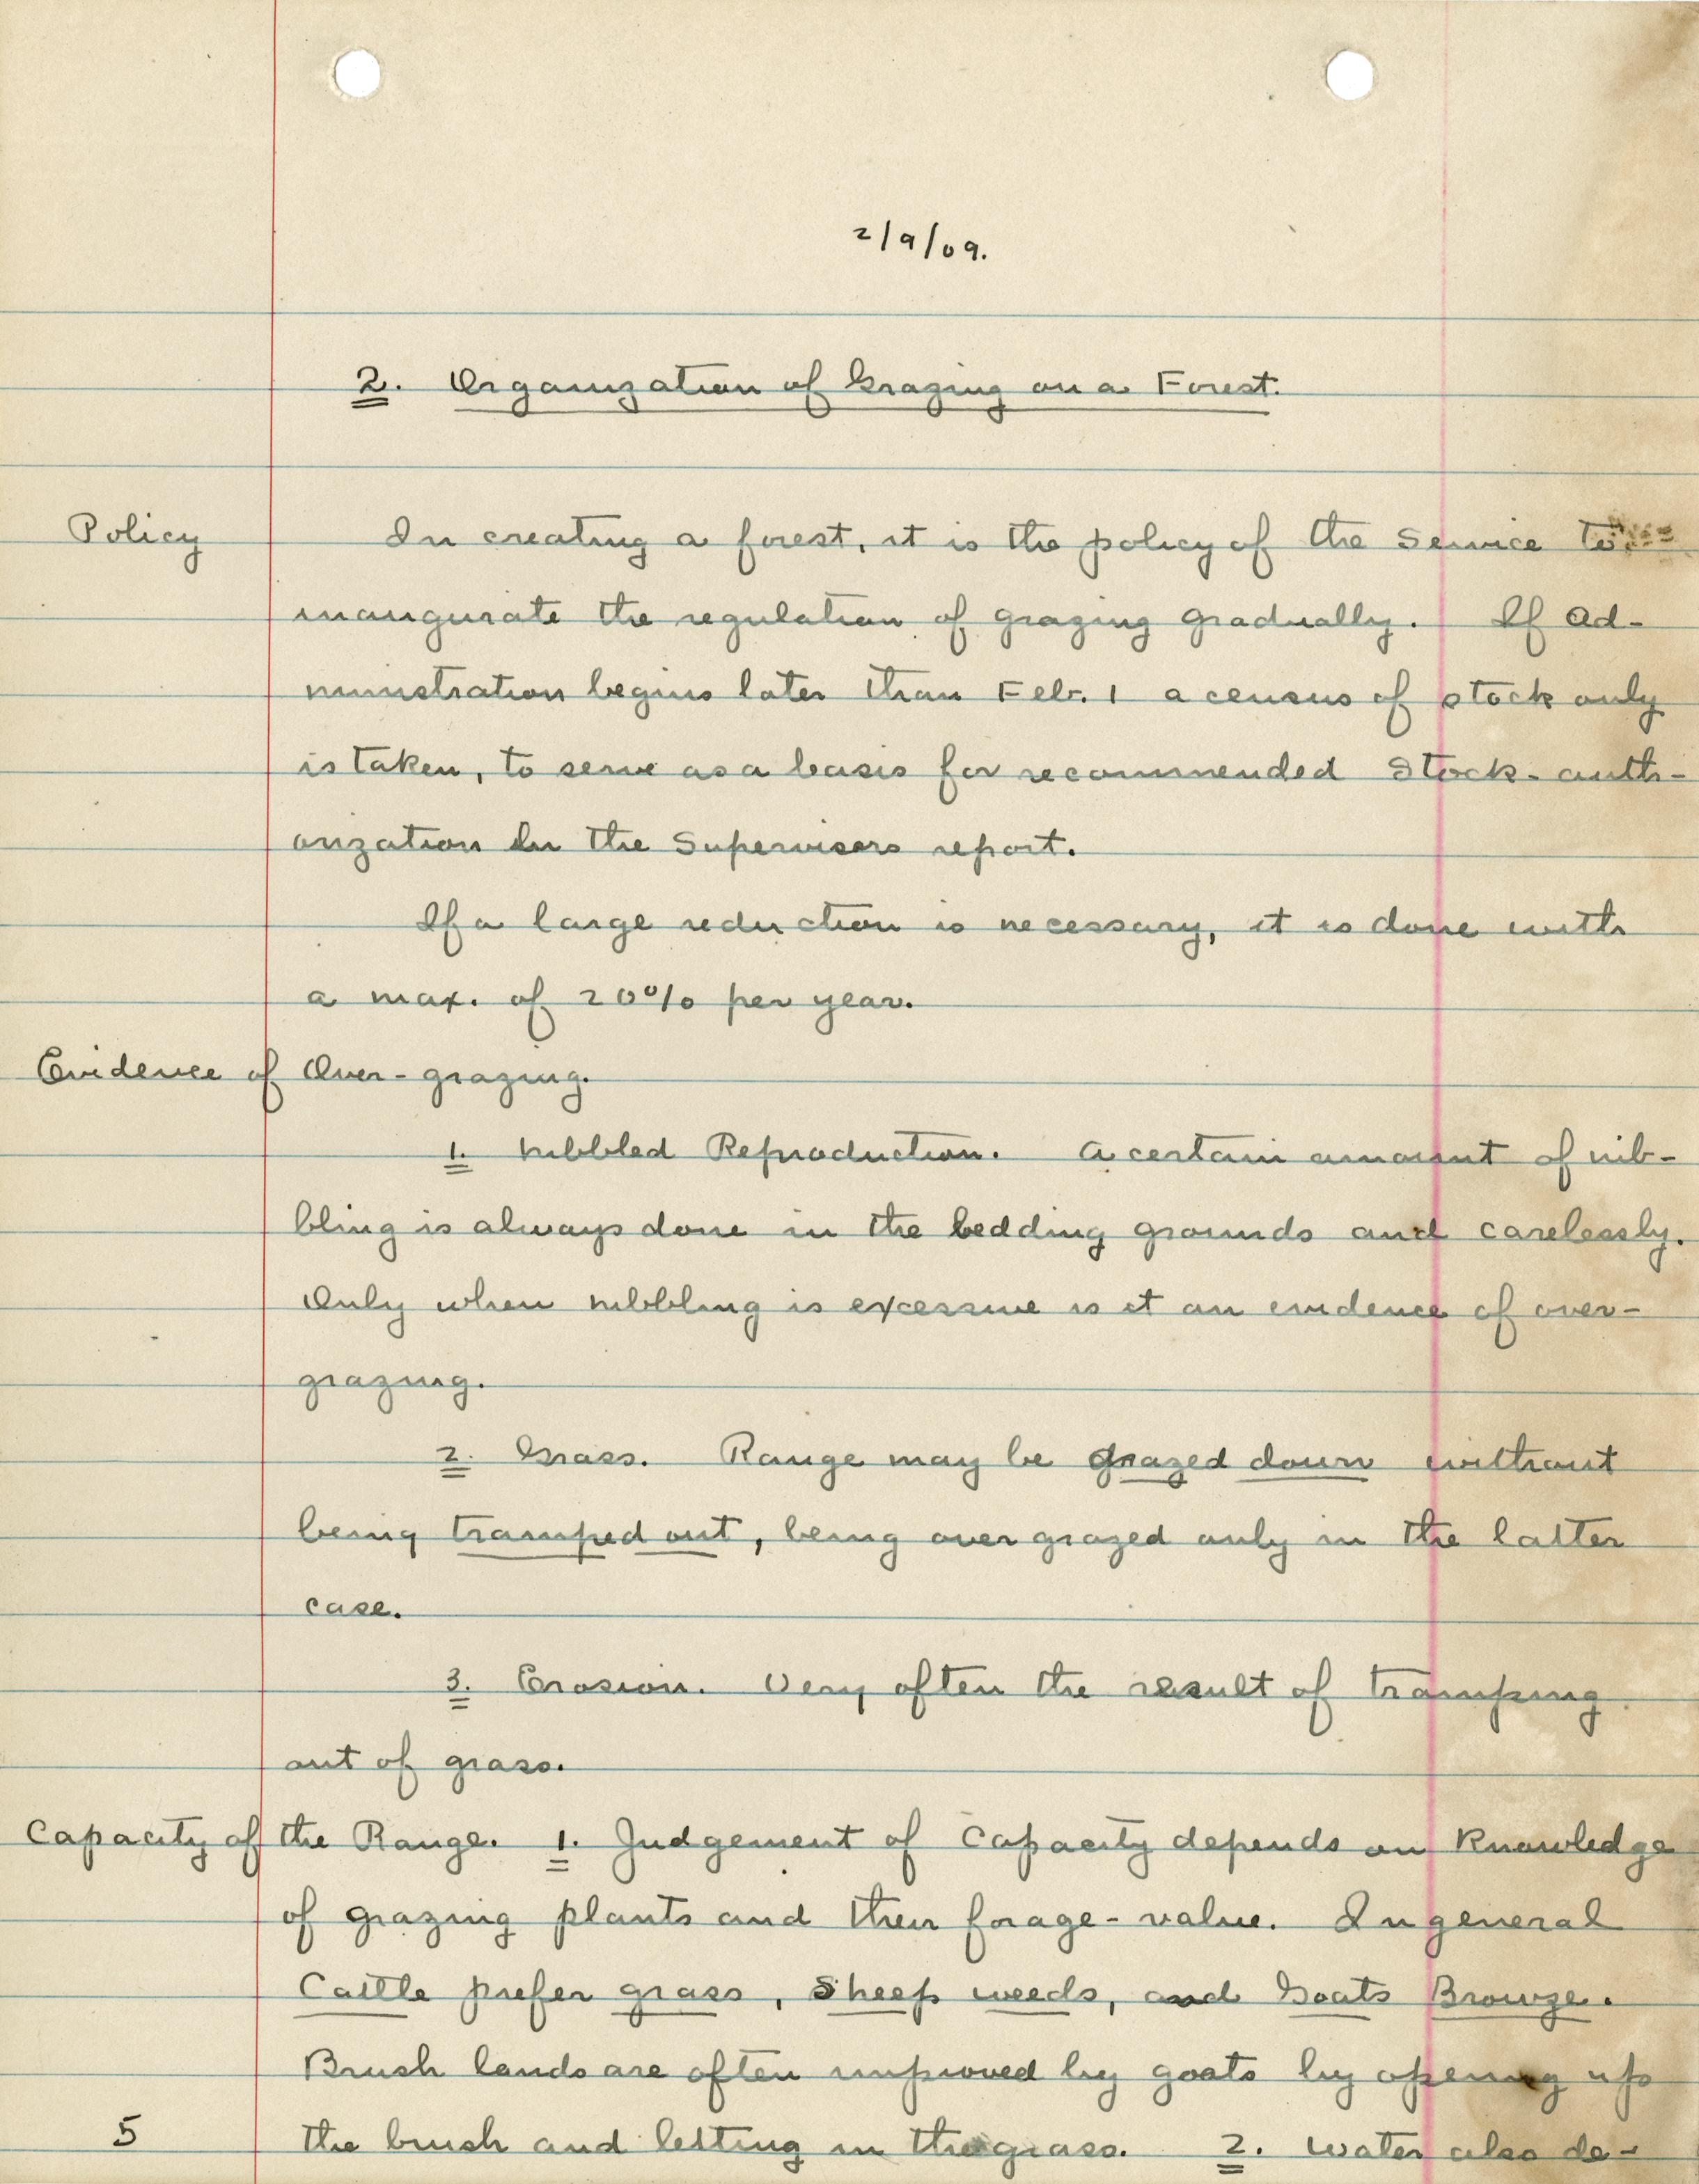 2/9/09.
2. Organization of Grazing on a Forest.
Policy In creating a forest, it is the policy of the Service to
inaugurate the regulation of grazing gradually. If ad-
ministration begins later than Feb. 1 a census of stock only
is taken, to serve as a basis for recommended Stock-auth-
orization in the Supervisors report.
If a large reduction is necessary, it is done with
a max. of 20% per year.
Evidence of Over-grazing.
1. Nibbled Reproduction. A certain amount of nib-
bling is always done in the bedding grounds and carelessly.
Only when nibbling is excessive is it an evidence of over-
grazing.
2. Grass. Range may be grazed down without
being tramped out, being over grazed only in the latter
case.
3. Erosion. Very often the result of tramping
out of grass.
Capacity of the Range. 1. Judgement of Capacity depends on Knowledge
of grazing plants and their forage-value. In general
Cattle prefer grass, Sheep weeds, and Goats Browze.
Brush lands are often improved by goats by opening up
5 the brush and letting in the grass. 2. Water also de-